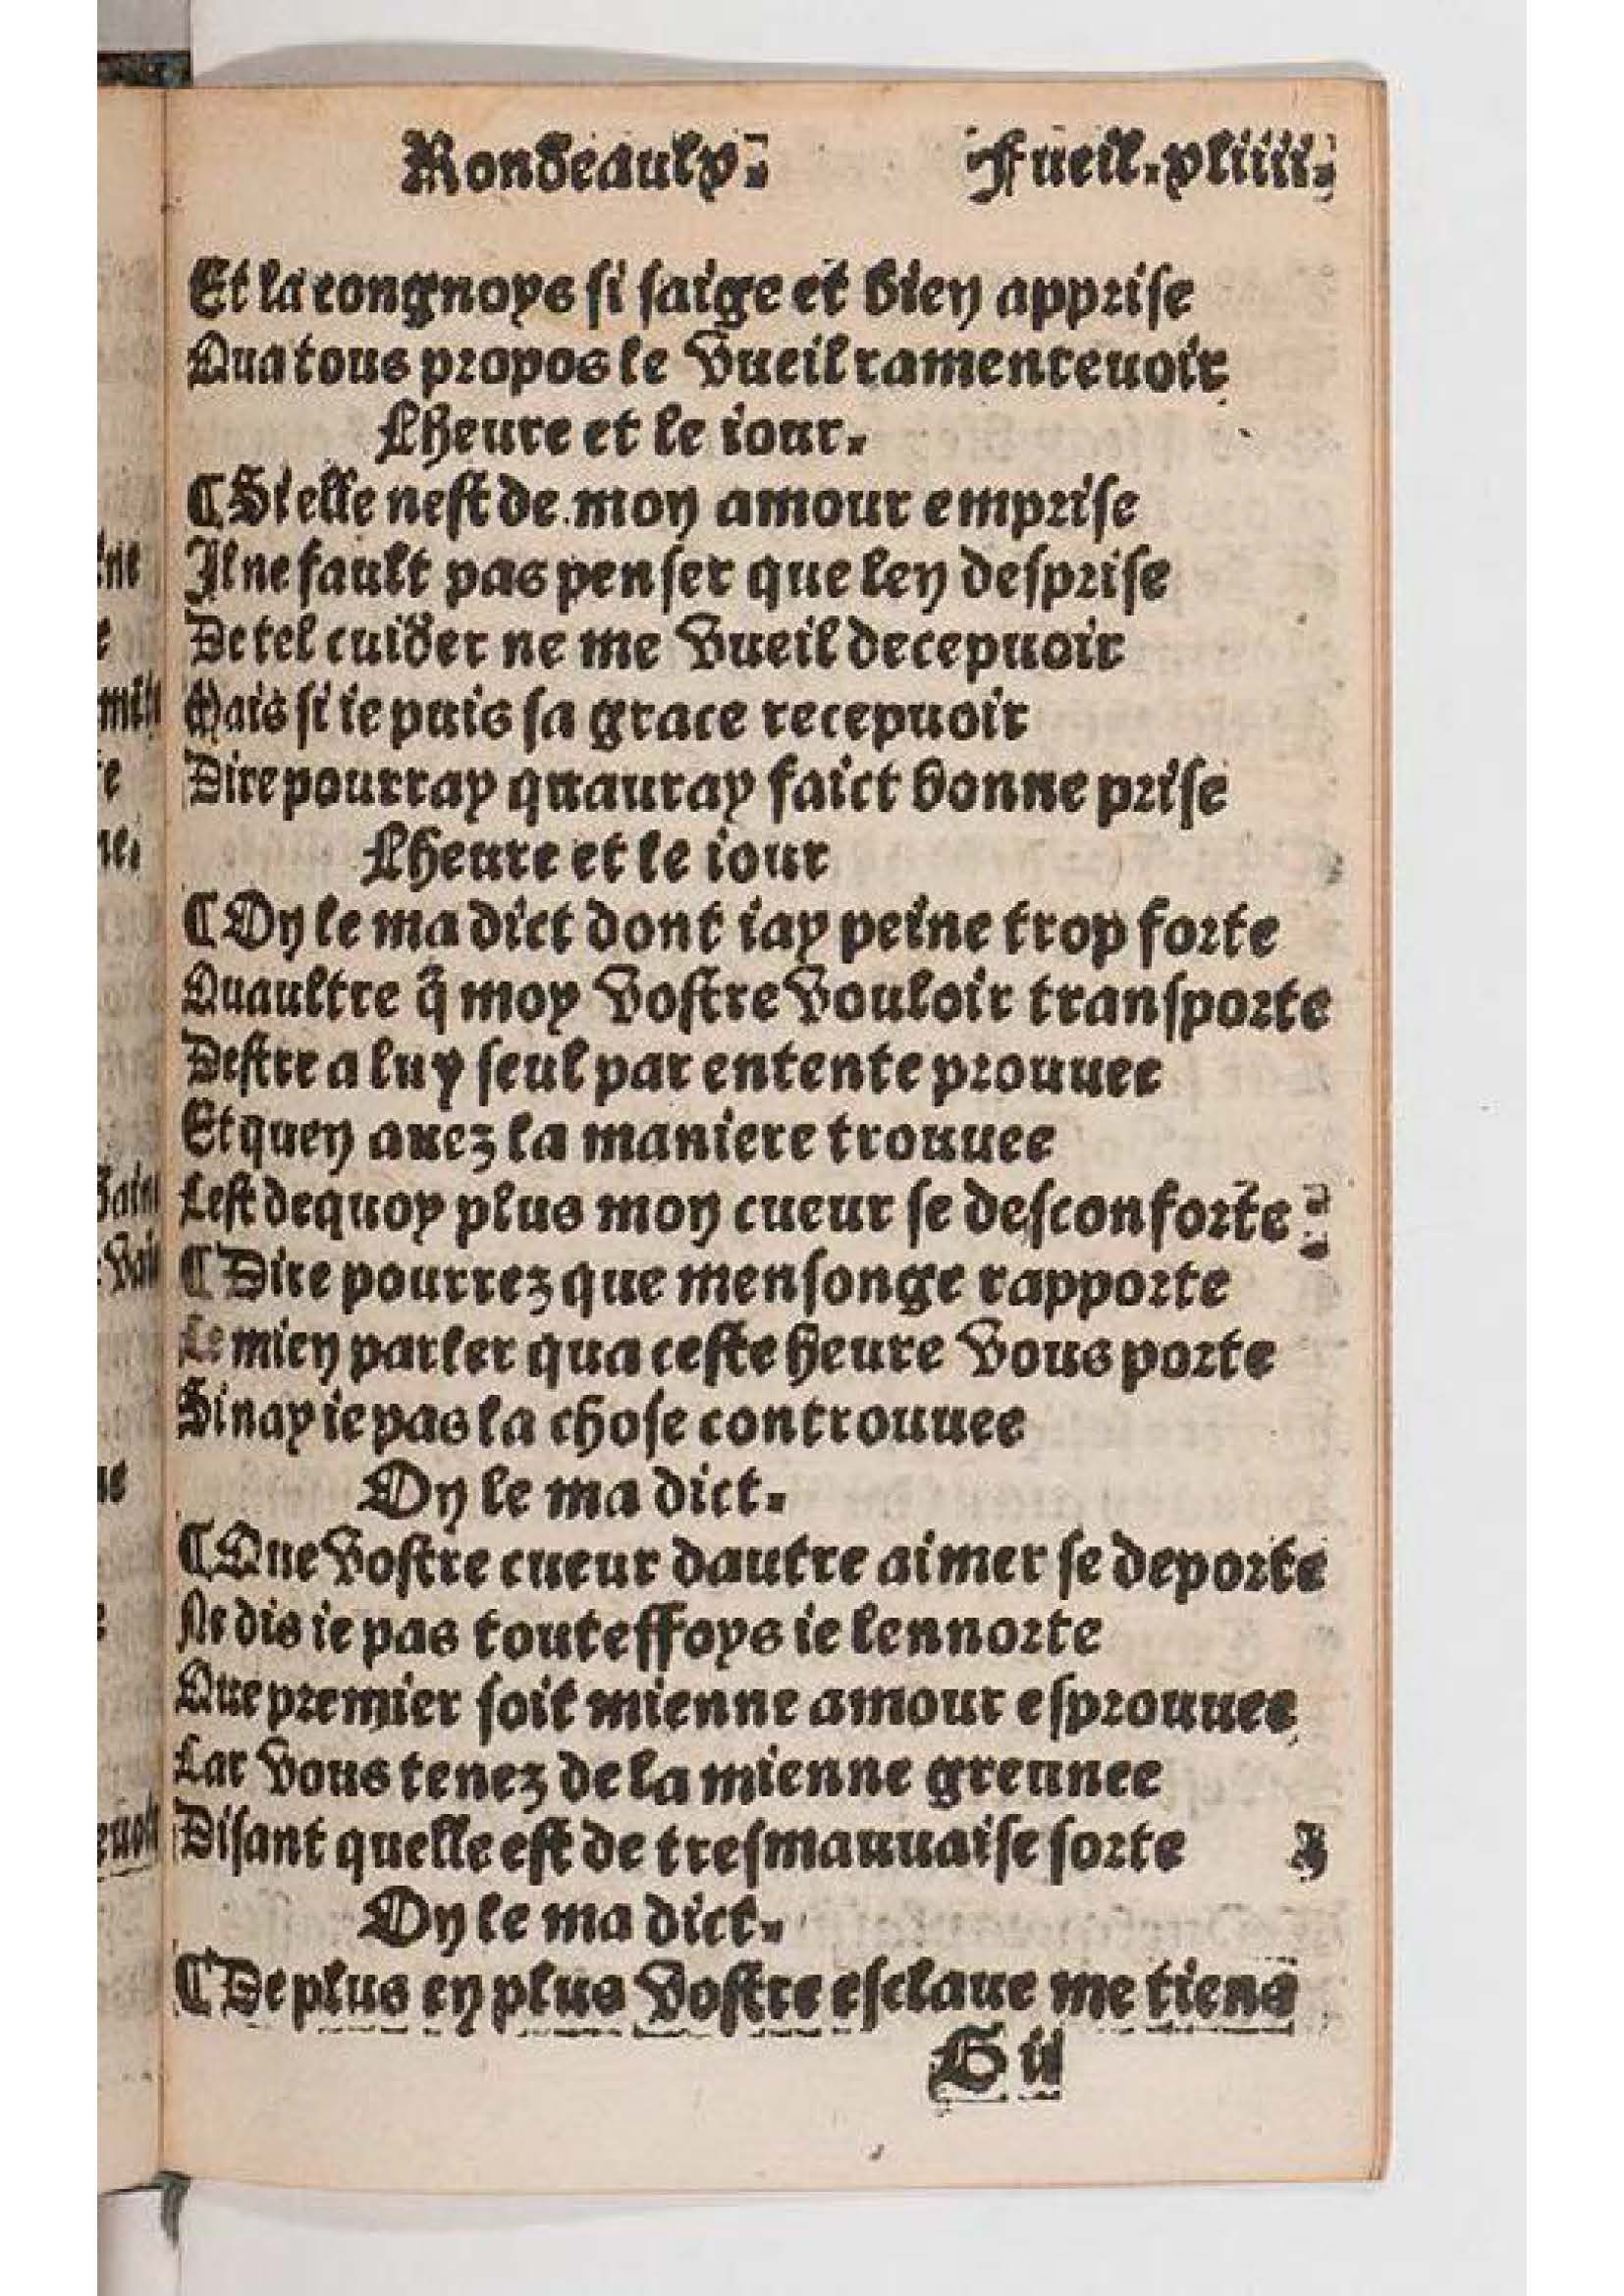 Rondeaulx. Fueil.xliiii.
Et la congnoys si saige et bien apprise
Qua tous propos le vueil ramenteuoir
Lheure et le iour.
¶ Si elle nest de mon amour emprise
Il ne fault pas penser que len desprise
De tel cuider ne me vueil decepuoir
Mais si ie puis sa grace recepuoir
Dire pourray quauray faict bonne prise
Lheure et le iour
¶ On le ma dict dont iay peine trop forte
Quaultre q̃ moy vostre vouloir transporte
Destre a luy seul par entente prouuee
Et quen auez la maniere trouuee
Cest dequoy plus mon cueur se desconforte
¶ Dire pourrez que mensonge rapporte
Le mien parler qua ceste heure vous porte
Si nay ie pas la chose controuuee
On le ma dict.
¶ Que vostre cueur dautre aimer se deporte
Ne dis ie pas touteffoys ie lennorte
Que premier soit mienne amour esprouuee
Car vous tenez de la mienne greunee
Disant quelle est de tresmauuaise sorte
On le ma dict.
¶ De plus en plus vostre esclaue me tiens
G ii